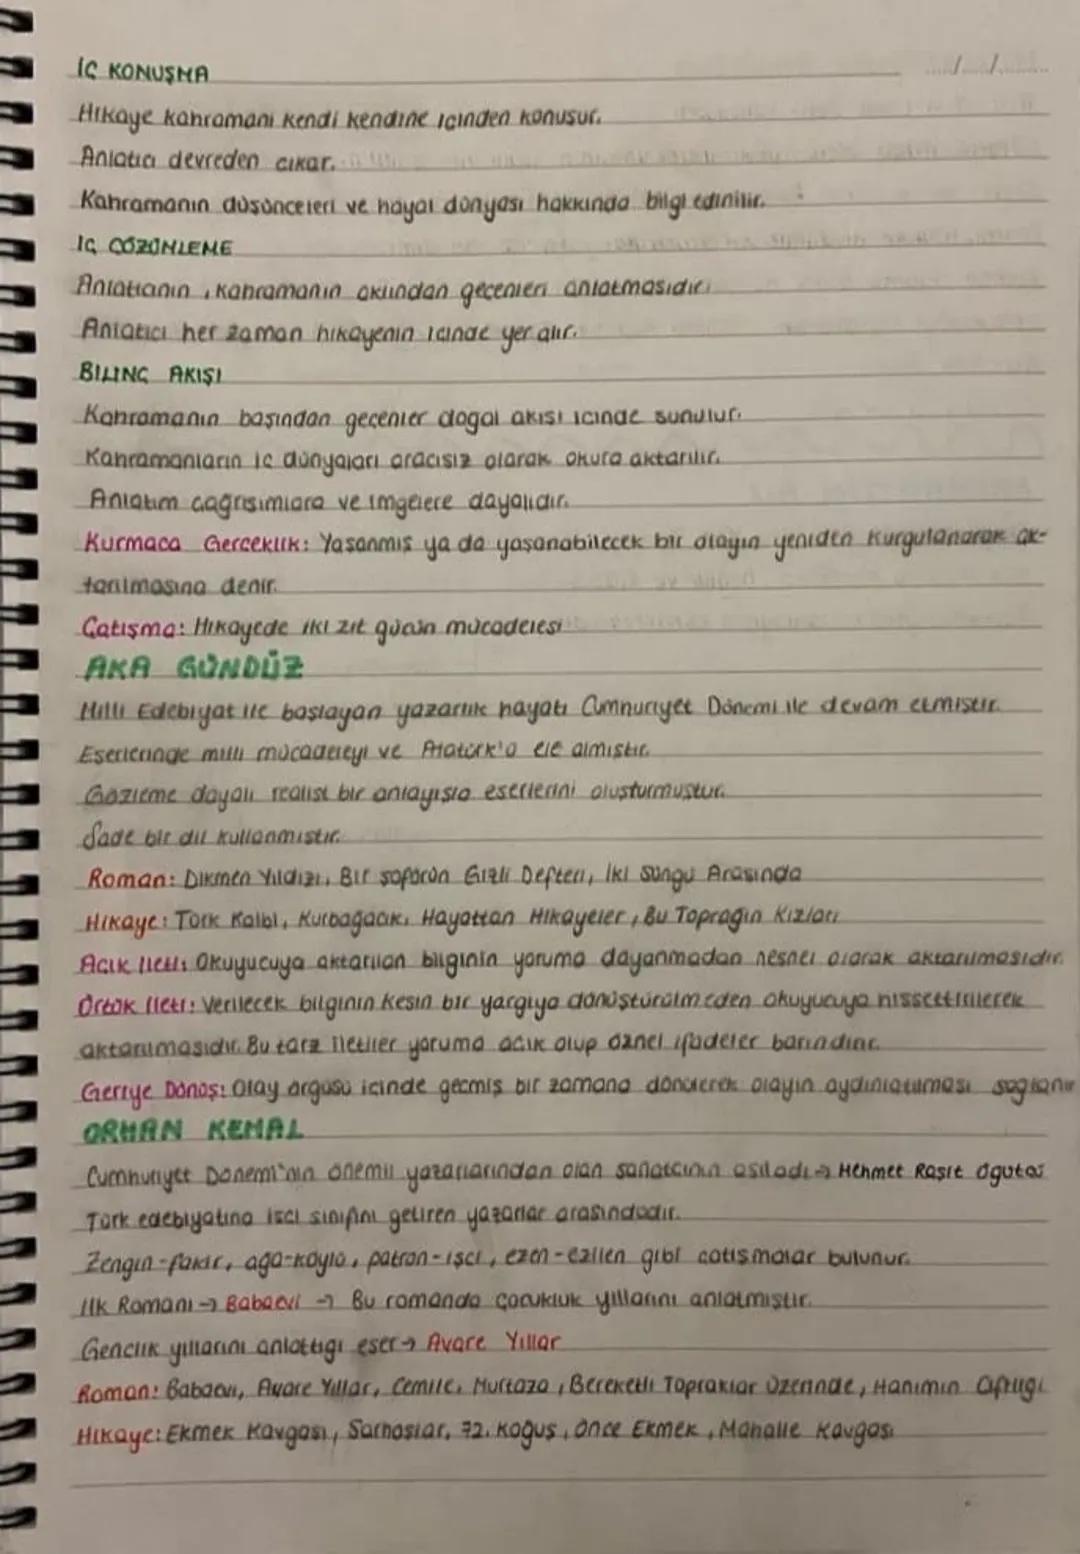 İÇ KONUŞMA
Hikaye kahramanı kendi kendine içinden konuşur.
Anlatıcı devreden çıkar.
Kahramanın düşünceleri ve hayal dünyası hakkında bilgi edinilir.
İÇ ÇÖZÜMLEME
Anlatıcının, kahramanın aklından geçenleri anlatmasıdır.
Anlatıcı her zaman hikayenin içinde yer alır.
BİLİNÇ AKIŞI
Kahramanın başından geçenler doğal akışı içinde sunulur.
Kahramanların iç dünyaları aracısız olarak okura aktarılır.
Anlatım çağrışımlara ve imgelere dayalıdır.
Kurmaca Gerçeklik: Yaşanmış ya da yaşanabilecek bir olayın yeniden kurgulanarak ak-
tarılmasına denir.
Çatışma: Hikayede iki zıt gücün mücadelesi
AKA GÜNDÜZ
Milli Edebiyat ile başlayan yazarlık hayatı Cumhuriyet Dönemi ile devam etmiştir.
Eserlerinde milli mücadeleyi ve Atatürk'ü ele almıştır.
Gözleme dayalı realist bir anlayışla eserlerini oluşturmuştur.
Sade bir dil kullanmıştır.
Roman: Dikmen Yıldızı, Bir Şoförün Gizli Defteri, İki Süngü Arasında
Hikaye: Türk Kalbi, Kurbağacık, Hayattan Hikayeler, Bu Toprağın Kızları
Açık İleti: Okuyucuya aktarılan bilginin yoruma dayanmadan nesnel olarak aktarılmasıdır.
Örtük İleti: Verilecek bilginin kesin bir yargıya dönüştürülmeden okuyucuya hissettirilerek
aktarılmasıdır. Bu tarz iletiler yoruma açık olup öznel ifadeler barındırır.
Geriye Dönüş: Olay örgüsü içinde geçmiş bir zamana dönülerek olayın aydınlatılması sağlanır
ORHAN KEMAL
Cumhuriyet Dönemi'nin önemli yazarlarından olan sanatçının asıl adı → Mehmet Raşit Öğütçü
Türk edebiyatına işçi sınıfını getiren yazarlar arasındadır.
Zengin-fakir, ağa-köylü, patron-işçi, ezen-ezilen gibi çatışmalar bulunur.
İlk Romanı → Babaevi → Bu romanda çocukluk yıllarını anlatmıştır.
Gençlik yıllarını anlattığı eser → Avare Yıllar
Roman: Babaevi, Avare Yıllar, Cemile, Murtaza, Bereketli Topraklar Üzerinde, Hanımın Çiftliği
Hikaye: Ekmek Kavgası, Sarhoşlar, 72. Koğuş, Önce Ekmek, Mahalle Kavgası